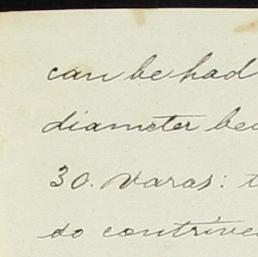 can be had
diameter bec
30. varas: t
so contrive